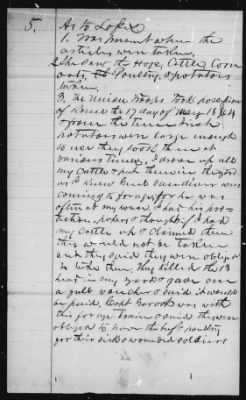 5. As to Loss
1. Was present when the
articles were taken.
2. She saw the Hogs, Cattle, Corn
oats, Poultry, & potatoes
taken.
3. The Union Troops took possession
of the 17 day of May 1864
& from the time the Irish
potatoes were large enough
to use they took them at
various times. I drove up all
my cattle & put them in the yard
as I knew
coming to forage for he was
often at my house & had his pro-
tection papers & thought if I had
my cattle up & claimed them
they would not be taken
but they said they were obliged
to take them they killed the 13
head in my yard & gave me
a receipt voucher & said it would
be paid. Capt was with
this forage train & said they were
obliged to have the beef & poultry
for their sick & wounded soldiers